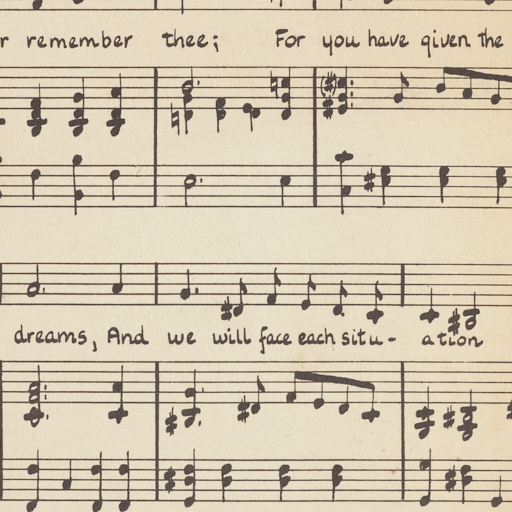 remember thee; For you have given the
dreams, And we will face each situ- ation